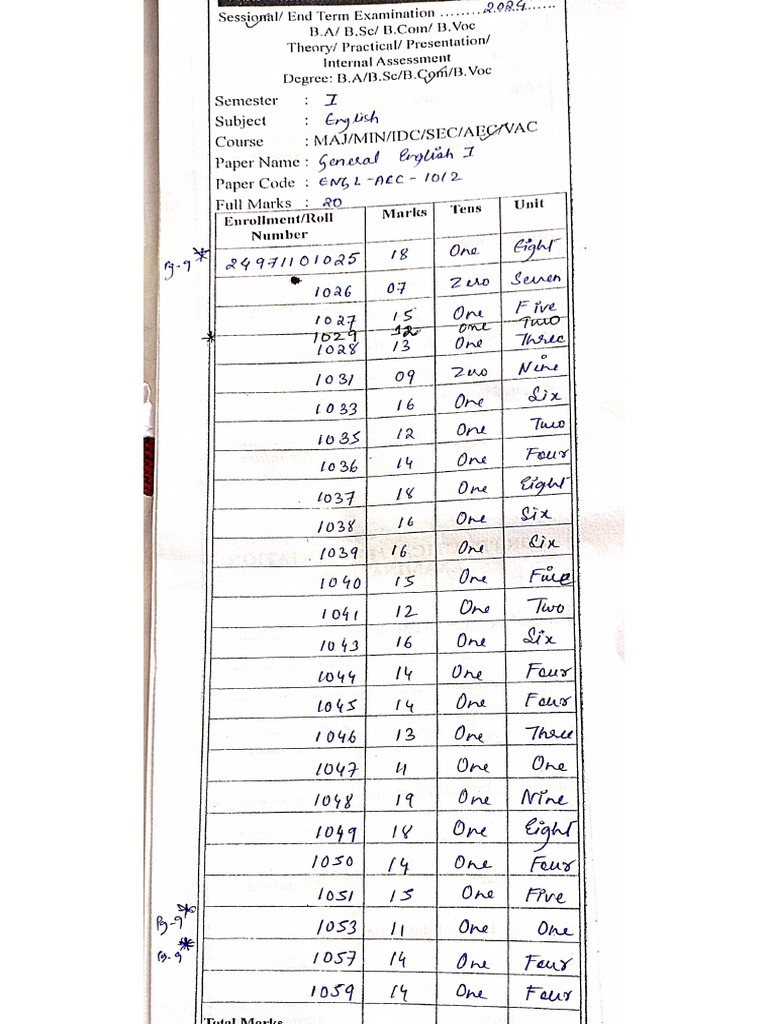 Sessional/ End Term Examination ........2024......
B.A/ B.Sc/ B.Com/ B.Voc
Theory/ Practical/ Presentation/
Internal Assessment
Degree: B.A/B.Sc/B.Com/B.Voc
Semester : I
Subject : English
Course : MAJ/MIN/IDC/SEC/AEC/VAC
Paper Name : General English I
Paper Code : ENGL-AEC-1012
Full Marks : 20
Enrollment/Roll Number Marks Tens Unit
Pg-9 * 24971101025 18 One Eight
1026 07 Zero Seven
1027 15 One Five
* 1029 12 One Two
1028 13 One Three
1031 09 Zero Nine
1033 16 One Six
1035 12 One Two
1036 14 One Four
1037 18 One Eight
1038 16 One Six
1039 16 One Six
1040 15 One Five
1041 12 One Two
1043 16 One Six
1044 14 One Four
1045 14 One Four
1046 13 One Three
1047 11 One One
1048 19 One Nine
1049 18 One Eight
1050 14 One Four
1051 15 One Five
Pg-9 * 1053 11 One One
Pg-9 * 1057 14 One Four
1059 14 One Four
Total Marks